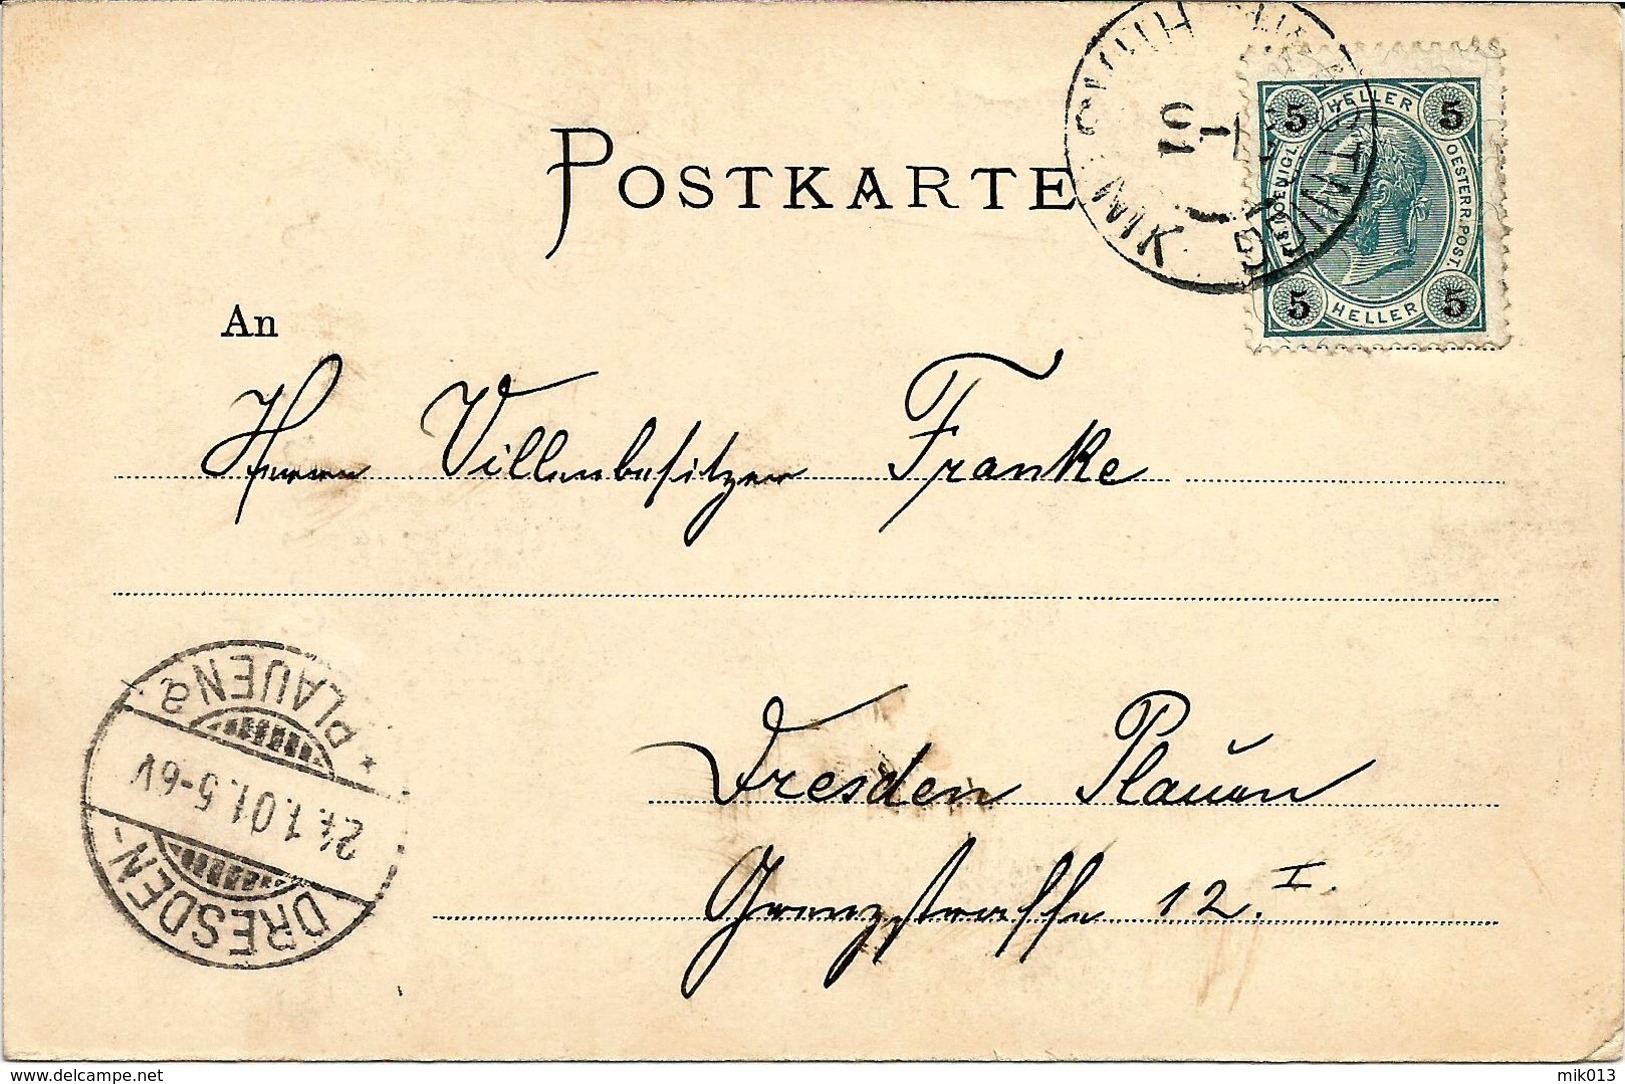 POSTKARTE
5 HELLER 5
OESTERR. POST.
5 HELLER 5
01
1
An
Herrn Villenbesitzer Franke
Dresden Plauen
Grenzstraße 12. I.
* PLAUEN
24.1.01.5-6V
DRESDEN-
www.delcampe.net
mik013